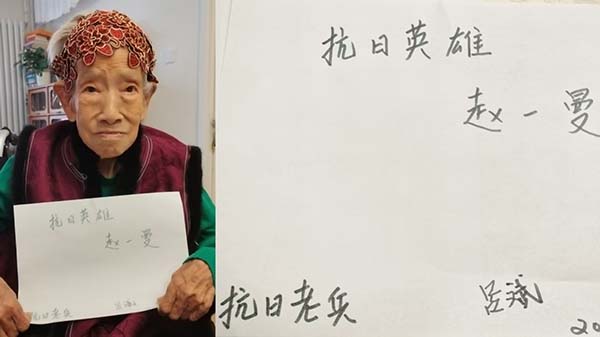 抗日英雄
赵一曼
抗日老兵 吕
抗日英雄
赵一曼
抗日老兵 吕
20